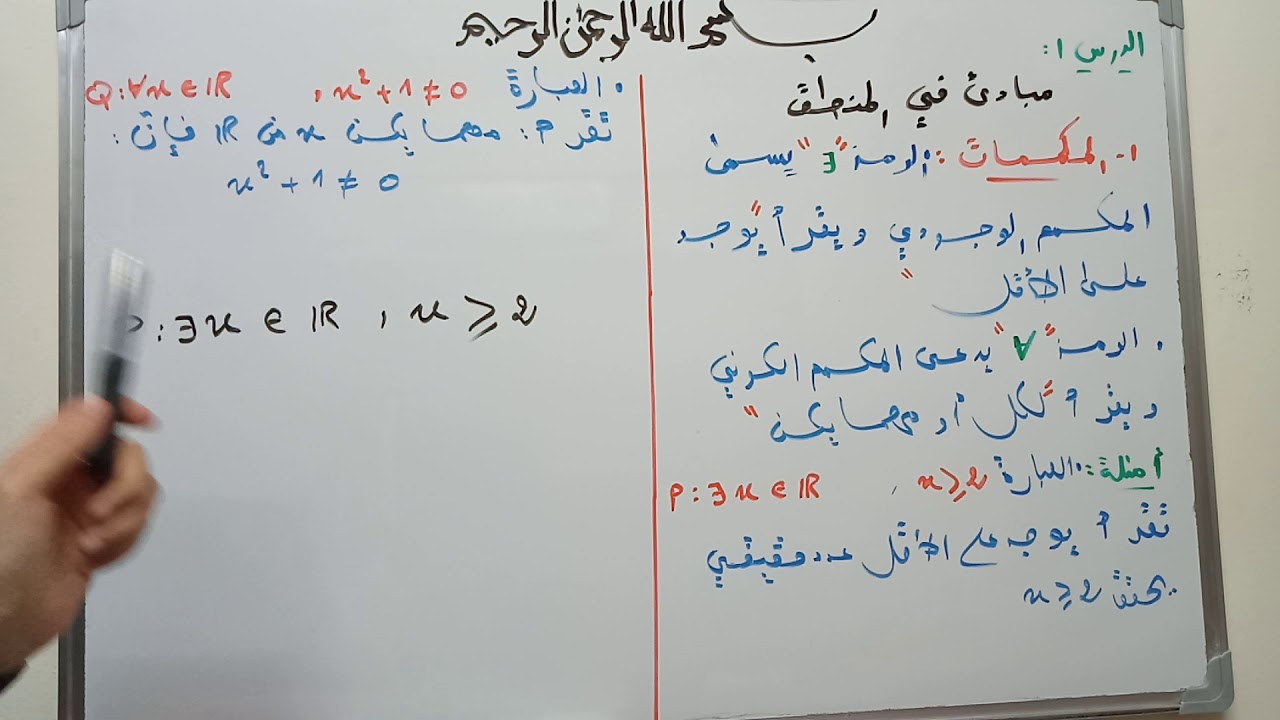 بسم الله الرحمن الرحيم
الدرس 1:
مبادئ في المنطق
1- المكممات: الرمز "∃" يسمى
المكمم الوجودي ويقرأ "يوجد
على الأقل"
. الرمز "∀" يدعى المكمم الكوني
ويقرأ "لكل أو مهما يكن"
أمثلة: • العبارة P: ∃x ∈ ℝ , x ⩾ 2
تقرأ يوجد على الأقل عدد حقيقي
يحقق x ⩾ 2
• العبارة Q: ∀x ∈ ℝ , x² + 1 ≠ 0
تقرأ: مهما يكن x من ℝ فإن:
x² + 1 ≠ 0
: ∃x ∈ ℝ , x ⩾ 2